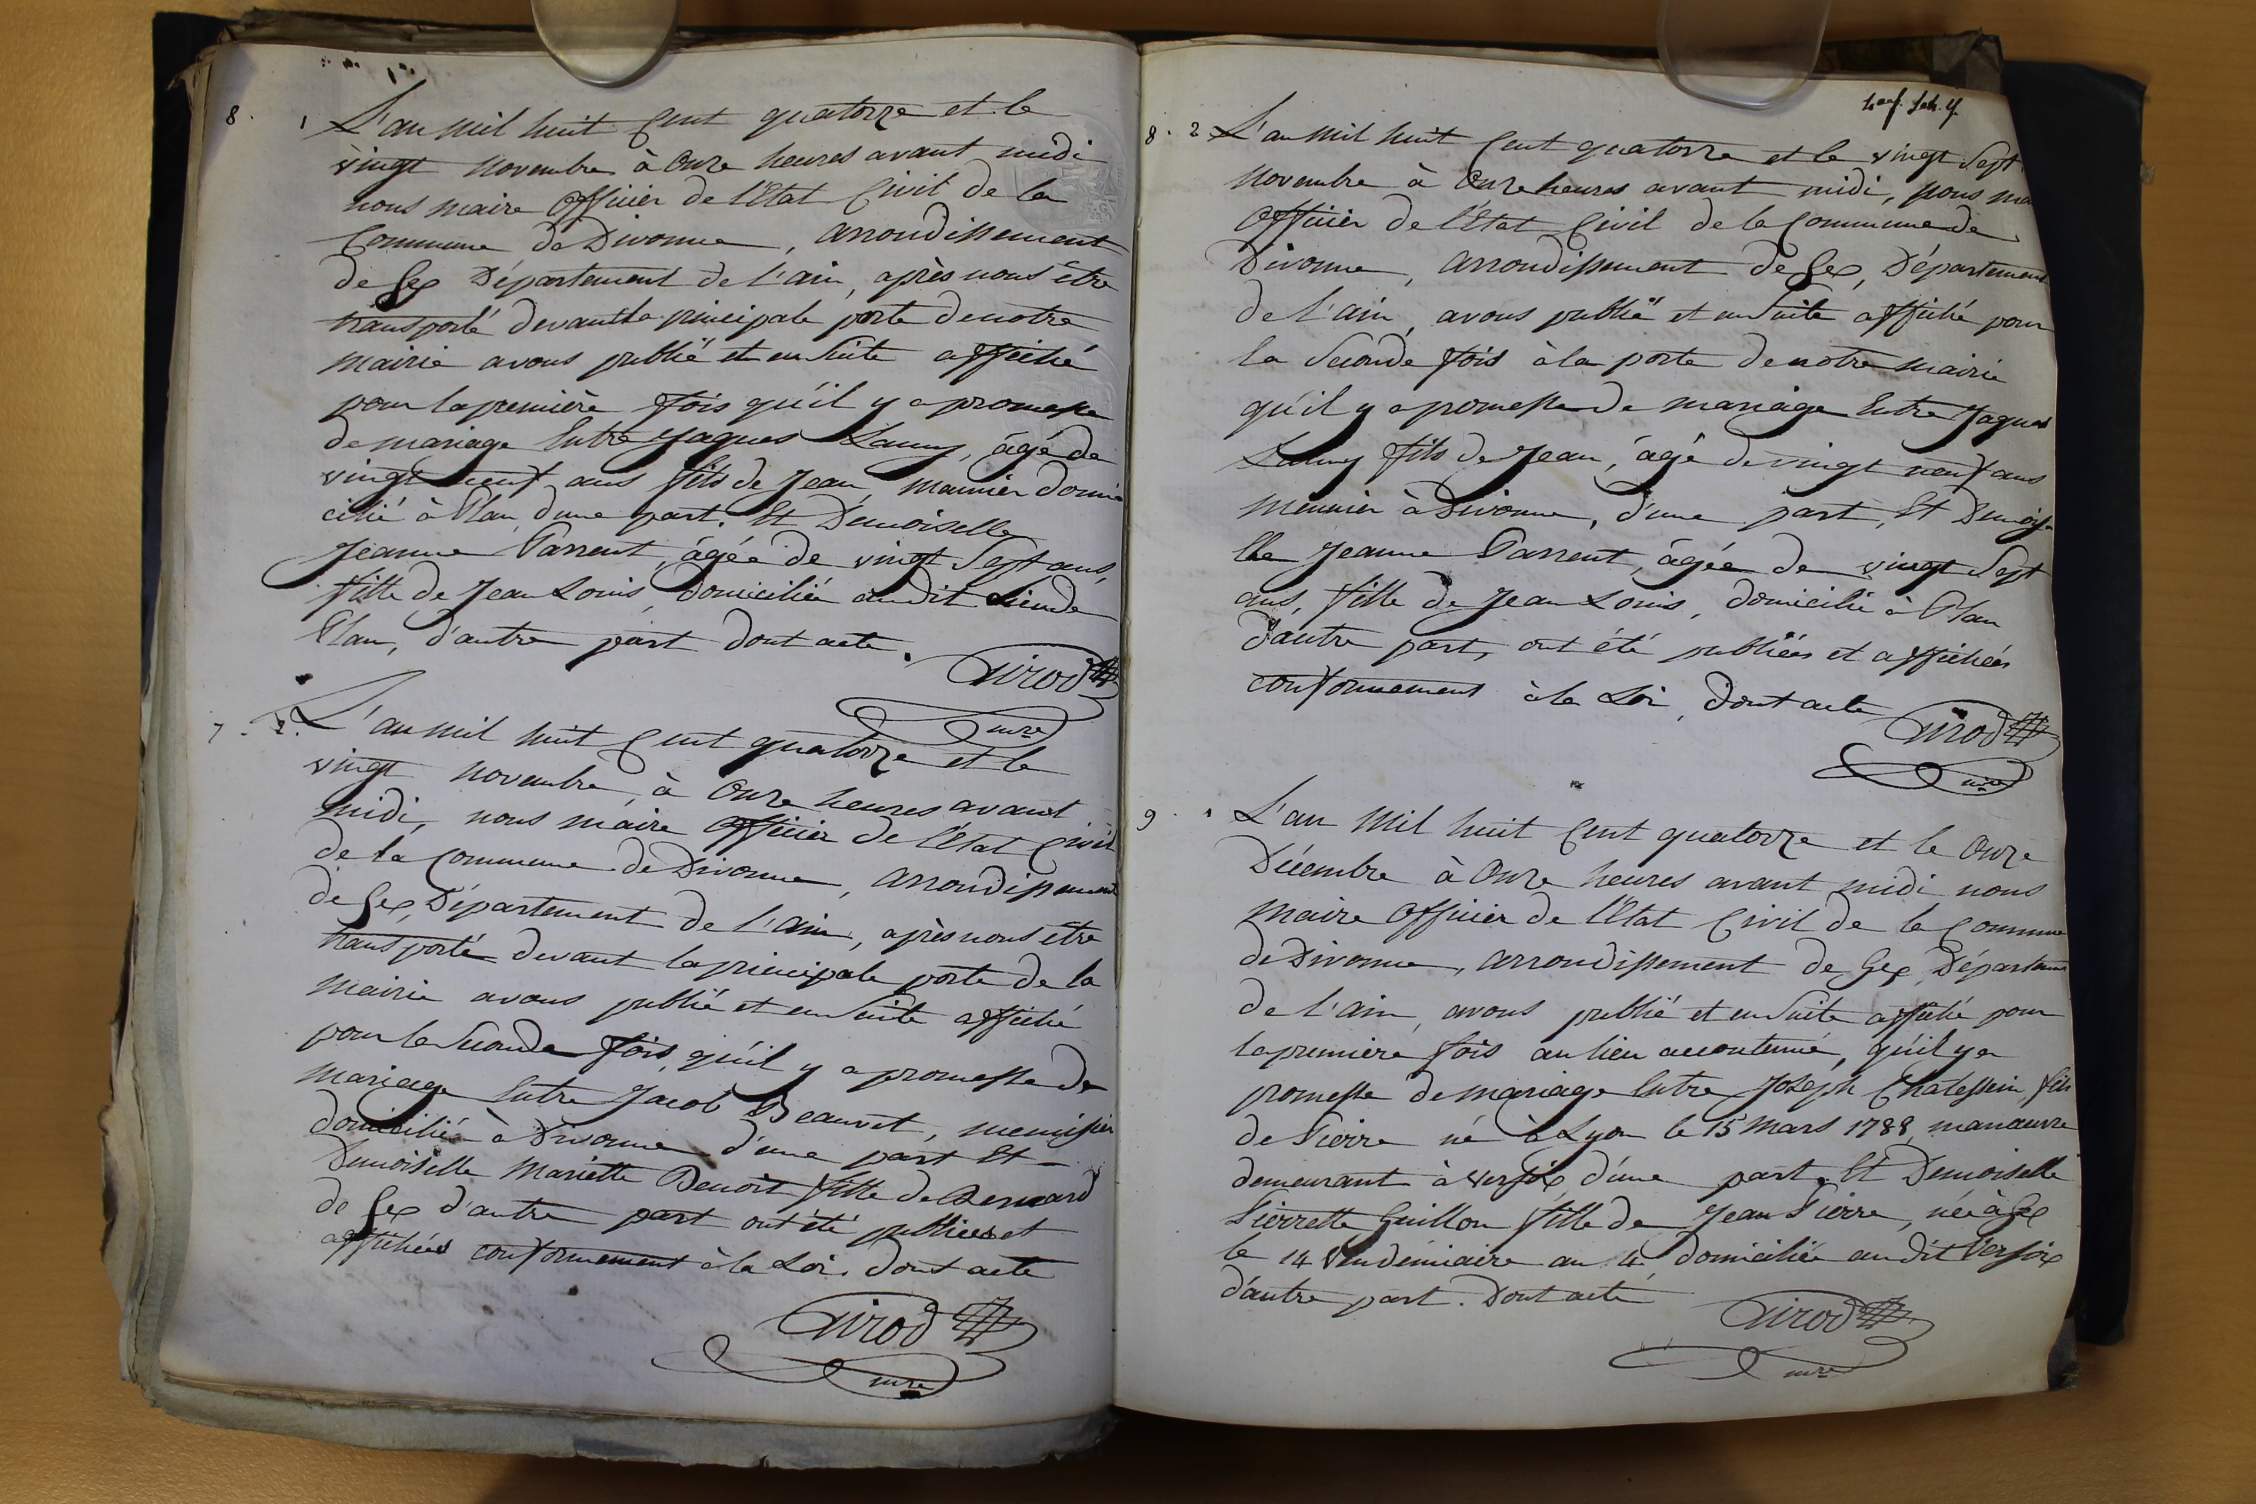 8. 1 L'an mil huit Cent quatorze et le
vingt novembre à Onze heures avant midi
nous maire Officier de l'Etat Civil de la
Commune de Divonne, arrondissement
de Gex Département de l'ain, après nous être
transporté devant la principale porte de notre
mairie avons publié et en Suite affiché
pour la première fois qu'il y a promesse
de mariage Entre Jaques Lanny, âgé de
vingt neuf ans fils de Jean, maunier domi
cilié à Plan, d'une part. Et Demoiselle
Jeanne Parrent, âgée de vingt Sept ans,
fille de Jean Louis, domiciliée au dit Lieu de
Plan, d'autre part dont acte.
Girod
mre
7. 2. L'an mil huit Cent quatorze et le
vingt novembre, à Onze heures avant
midi, nous maire Officier de l'Etat Civil
de la Commune de Divonne, arrondissement
de Gex, Département de l'ain, après nous être
transporté devant la principale porte de la
mairie avons publié et en Suite affiché
pour la Seconde fois, qu'il y a promesse de
mariage Entre Jacob Beauvet, menuisier
domicilié à Divonne d'une part Et
Demoiselle Mariette Benoit fille de Bernard
de Gex d'autre part ont été publiées et
affichées conformement à la Loi. Dont acte
Girod
mre
8. 2 L'an mil huit Cent quatorze et le vingt Sept
novembre à Onze heures avant midi, nous ma
Officier de l'Etat Civil de la Commune de
Divonne, arrondissement de Gex, Département
de l'ain, avons publié et en Suite affiché pour
la Seconde fois à la porte de notre mairie
qu'il y a promesse de mariage Entre Jaques
Lanny fils de Jean, âgé de vingt neuf ans
meunier à Divonne, d'une part, Et Demoise
lle Jeanne Parrent, âgée de vingt Sept
ans, fille de Jean Louis, domicilié à Plan
d'autre part, ont été publiées et affichées
conformement à la Loi, Dont acte
Girod
mre
9. 1 L'an Mil huit Cent quatorze et le Onze
Décembre à Onze heures avant midi nous
Maire Officier de l'Etat Civil de la Commune
de Divonne, arrondissement de Gex, Département
de l'ain, avons publié et en Suite affiché pour
la première fois au lieu accoutumé, qu'il y a
promesse de mariage Entre Joseph Chatessein, fils
de Pierre né à Lyon le 15 Mars 1788, manœuvre
demeurant à Versoix d'une part, Et Demoiselle
Pierrette Guillon fille de Jean Pierre, née à Gex
le 14 Vendémiaire an 4 domiciliée au dit Versoix
d'autre part. Dont acte
Girod
mre